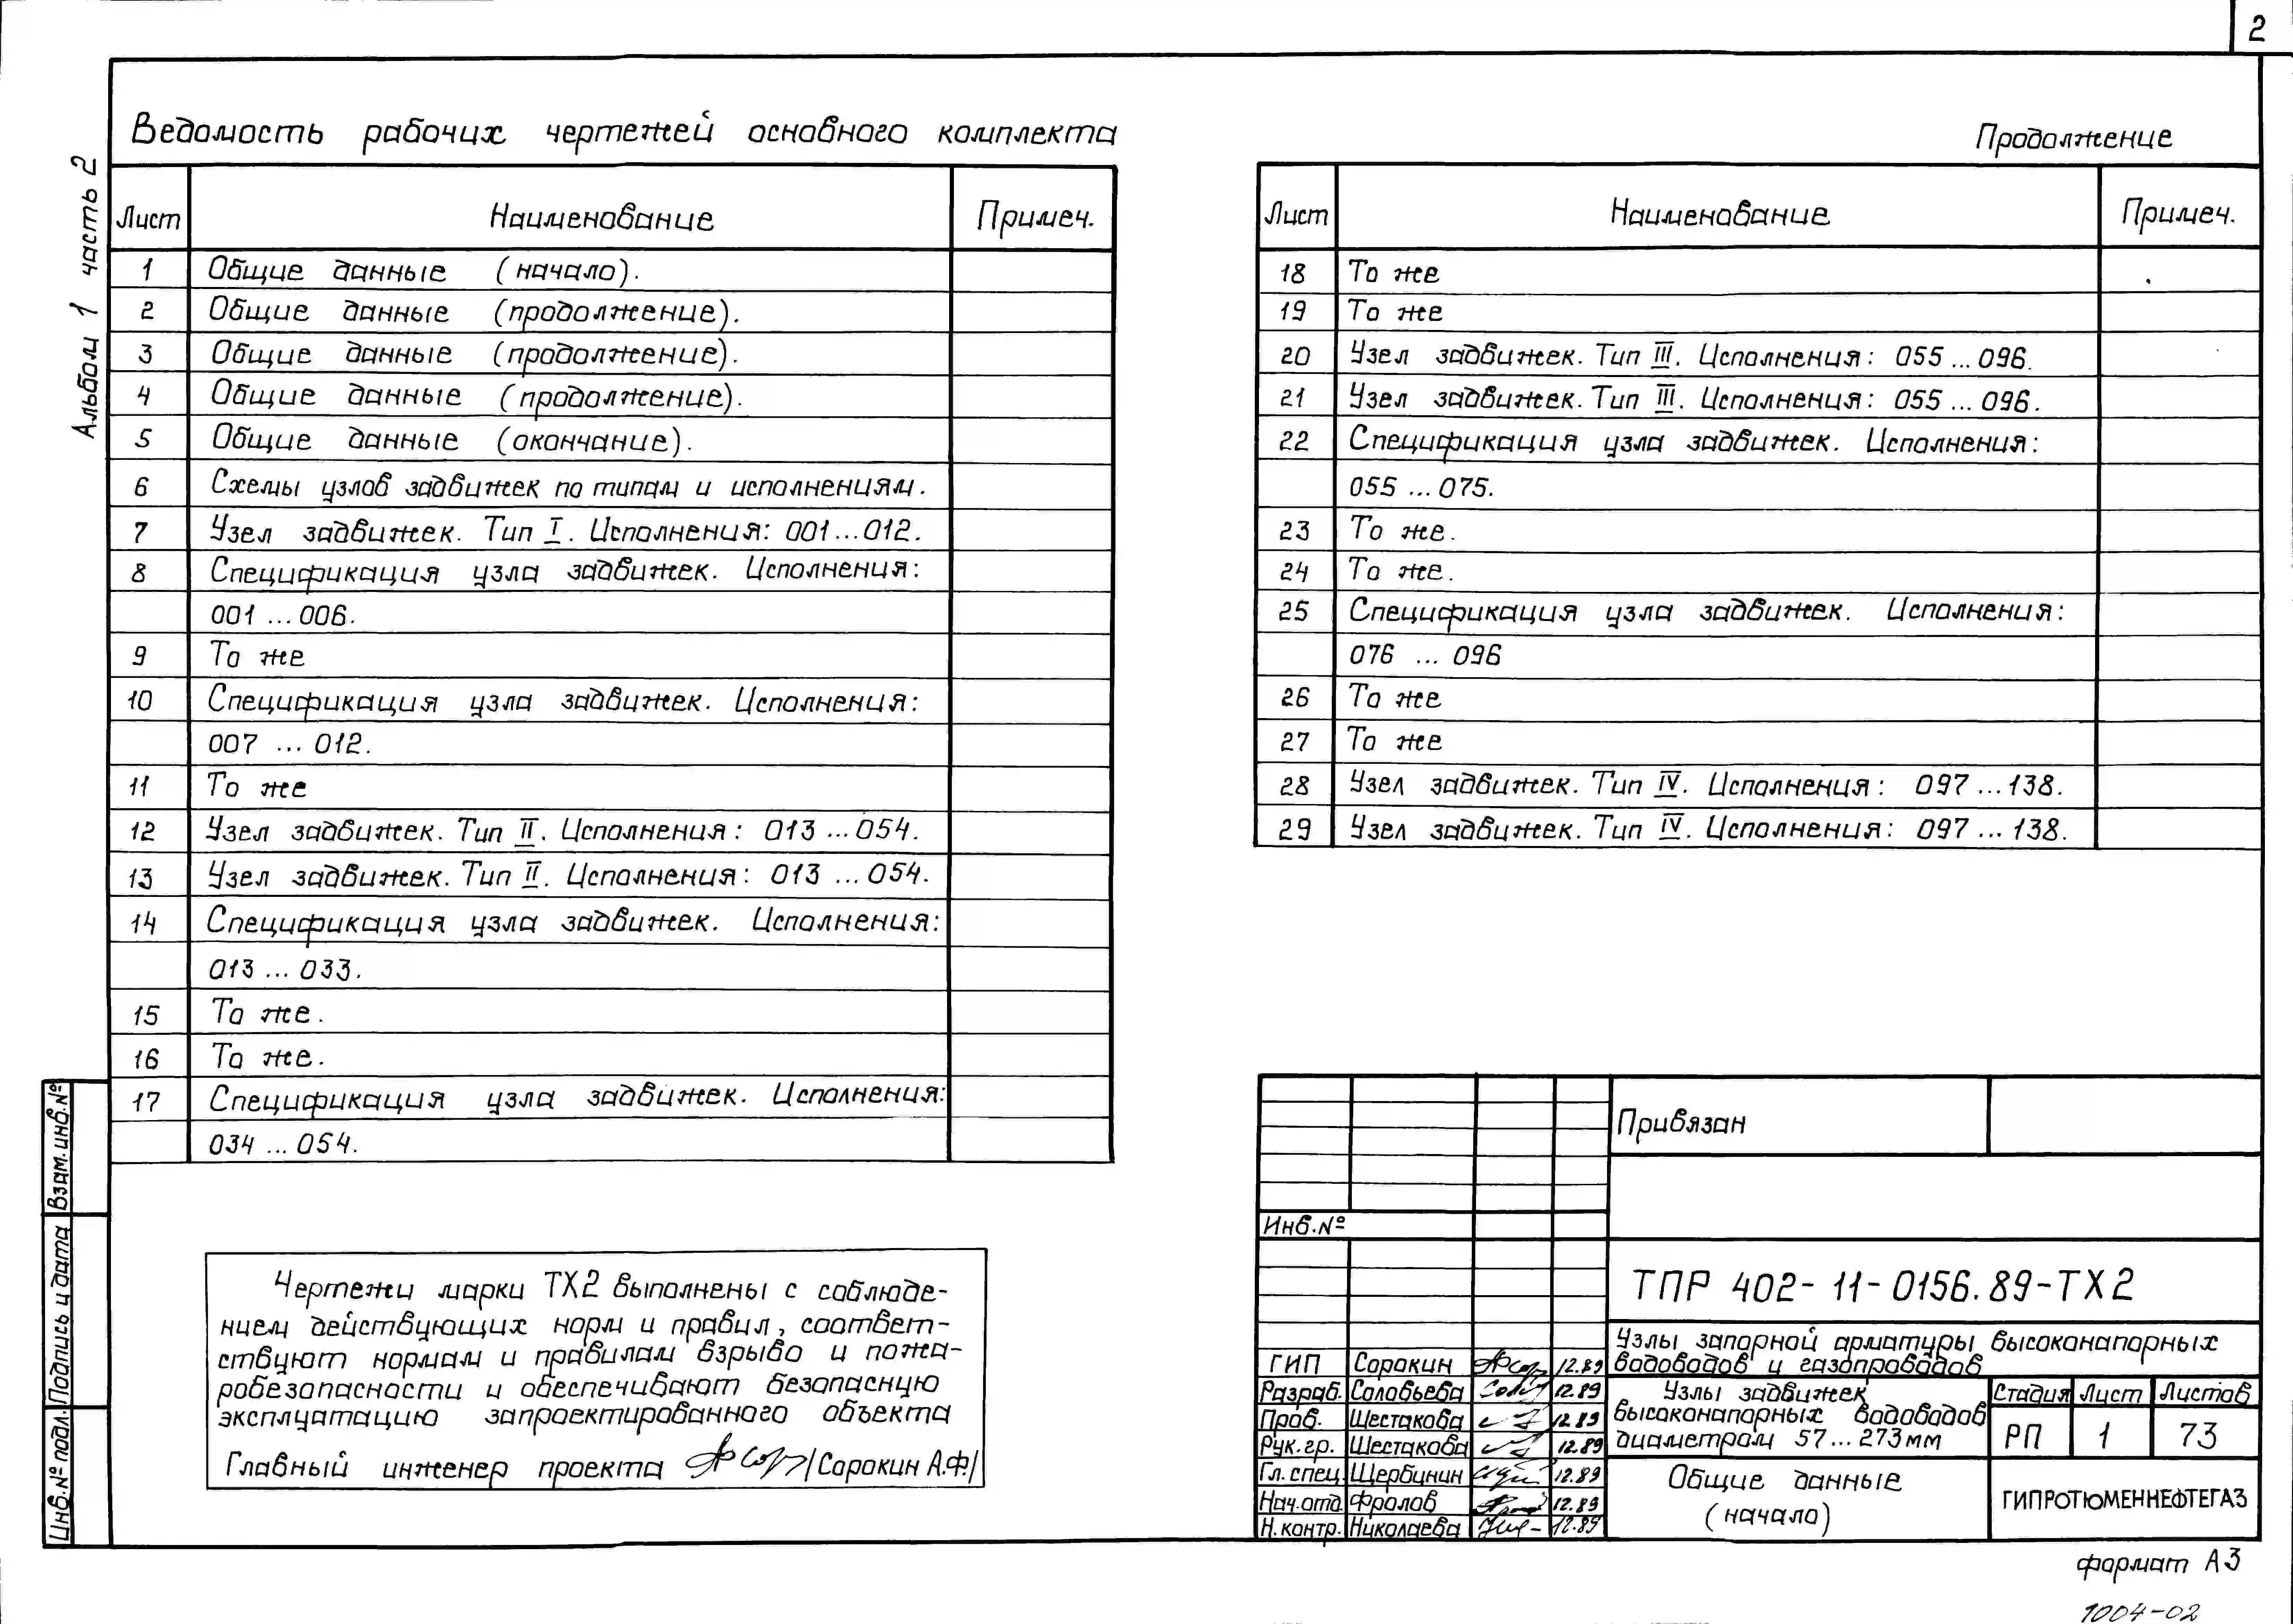 2
Альбом 1 часть 2
Ведомость рабочих чертежей основного комплекта
Лист Наименование Примеч.
1 Общие данные (начало).
2 Общие данные (продолжение).
3 Общие данные (продолжение).
4 Общие данные (продолжение).
5 Общие данные (окончание).
6 Схемы узлов задвижек по типам и исполнениям.
7 Узел задвижек. Тип I. Исполнения: 001...012.
8 Спецификация узла задвижек. Исполнения:
001 ...006.
9 То же
10 Спецификация узла задвижек. Исполнения:
007 ... 012.
11 То же
12 Узел задвижек. Тип II. Исполнения: 013 ...054.
13 Узел задвижек. Тип II. Исполнения: 013 ...054.
14 Спецификация узла задвижек. Исполнения:
013 ... 033.
15 То же.
16 То же.
17 Спецификация узла задвижек. Исполнения:
034 ... 054.
Продолжение
Лист Наименование Примеч.
18 То же
19 То же
20 Узел задвижек. Тип III. Исполнения: 055 ... 096.
21 Узел задвижек. Тип III. Исполнения: 055 ... 096.
22 Спецификация узла задвижек. Исполнения:
055 ... 075.
23 То же.
24 То же.
25 Спецификация узла задвижек. Исполнения:
076 ... 096
26 То же
27 То же
28 Узел задвижек. Тип IV. Исполнения: 097 ...138.
29 Узел задвижек. Тип IV. Исполнения: 097 ... 138.
Чертежи марки ТХ2 выполнены с соблюде-
нием действующих норм и правил, соответ-
ствуют нормам и правилам взрыво и пожа-
робезопасности и обеспечивают безопасную
эксплуатацию запроектированного объекта
Главный инженер проекта /Сорокин А.Ф./
Взам. инв. №
Подпись и дата
Инв. № подл.
Привязан
Инв. №
ТПР 402-11-0156.89-ТХ2
Узлы запорной арматуры высоконапорных
водоводов и газопроводов
ГИП Сорокин 12.89
Разраб. Соловьева 12.89
Пров. Шестакова 12.89
Рук. гр. Шестакова 12.89
Гл. спец. Щербинин 12.89
Нач. отд. Фролов 12.89
Н. контр. Николаева 12.89
Узлы задвижек
высоконапорных водоводов
диаметром 57...273мм
Стадия Лист Листов
РП 1 73
Общие данные
(начало)
ГИПРОТЮМЕННЕФТЕГАЗ
формат А3
1004-02